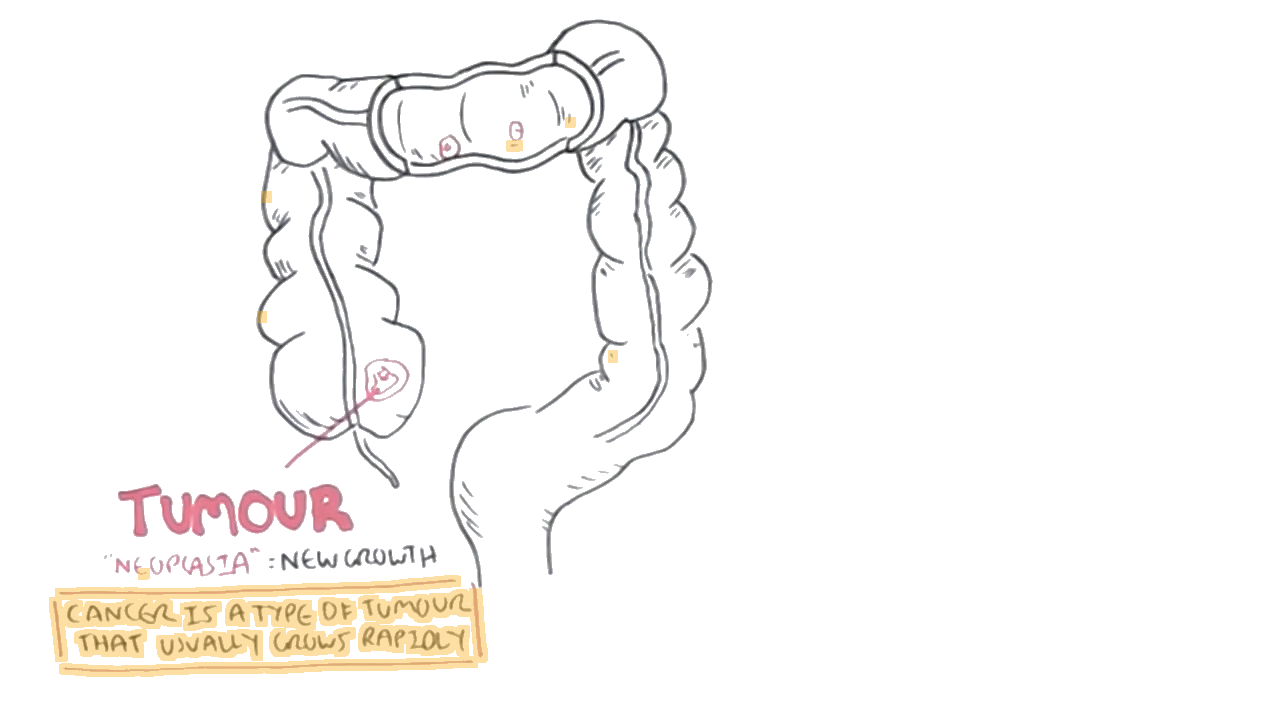 TUMOUR
"NEOPLASIA" = NEW GROWTH
CANCER IS A TYPE OF TUMOUR
THAT USUALLY GROWS RAPIDLY